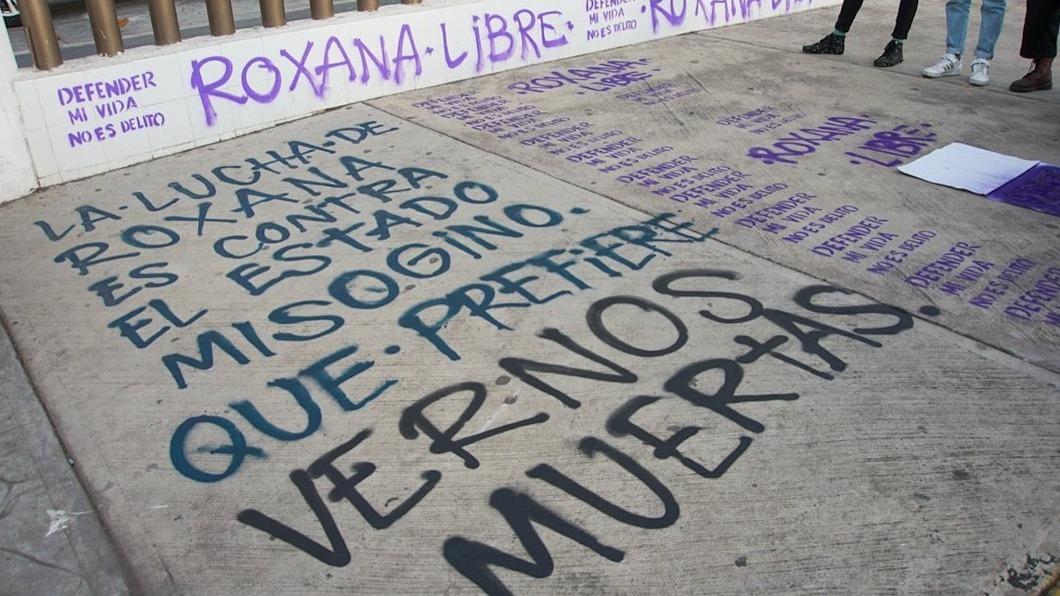 DEFENDER
MI VIDA
NO ES DELITO
ROXANA·LIBRE·
DEFENDER
MI VIDA
NO ES DELITO
ROXANA
ROXANA·
LIBRE·
DEFENDER
MI VIDA
NO ES DELITO
ROXANA·
LIBRE·
DEFENDER
MI VIDA
NO ES DELITO
DEFENDER
MI VIDA
NO ES DELITO
DEFENDER
MI VIDA
NO ES DELITO
DEFENDER
MI VIDA
NO ES DELITO
DEFENDER
MI VIDA
NO ES DELITO
LA·LUCHA·DE
ROXANA
ES CONTRA
EL ESTADO
MISOGINO.
QUE·PREFIERE
VERNOS
MUERTAS.